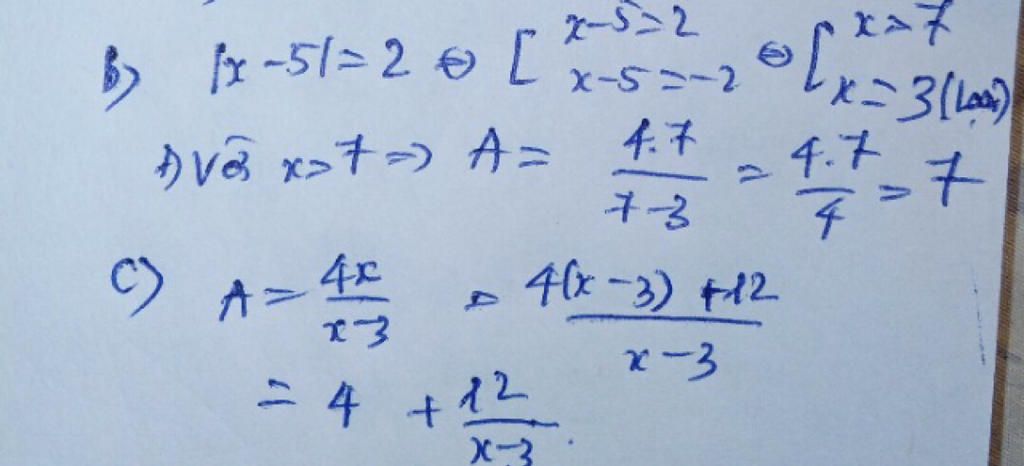 b) |x-5|=2 ⇔ [ x-5=2 ⇔ [ x=7
x-5=-2 x=3 (Loại)
+) Với x=7 => A = 4.7/7-3 = 4.7/4 = 7
c) A = 4x/x-3 = 4(x-3)+12/x-3
= 4 + 12/x-3.